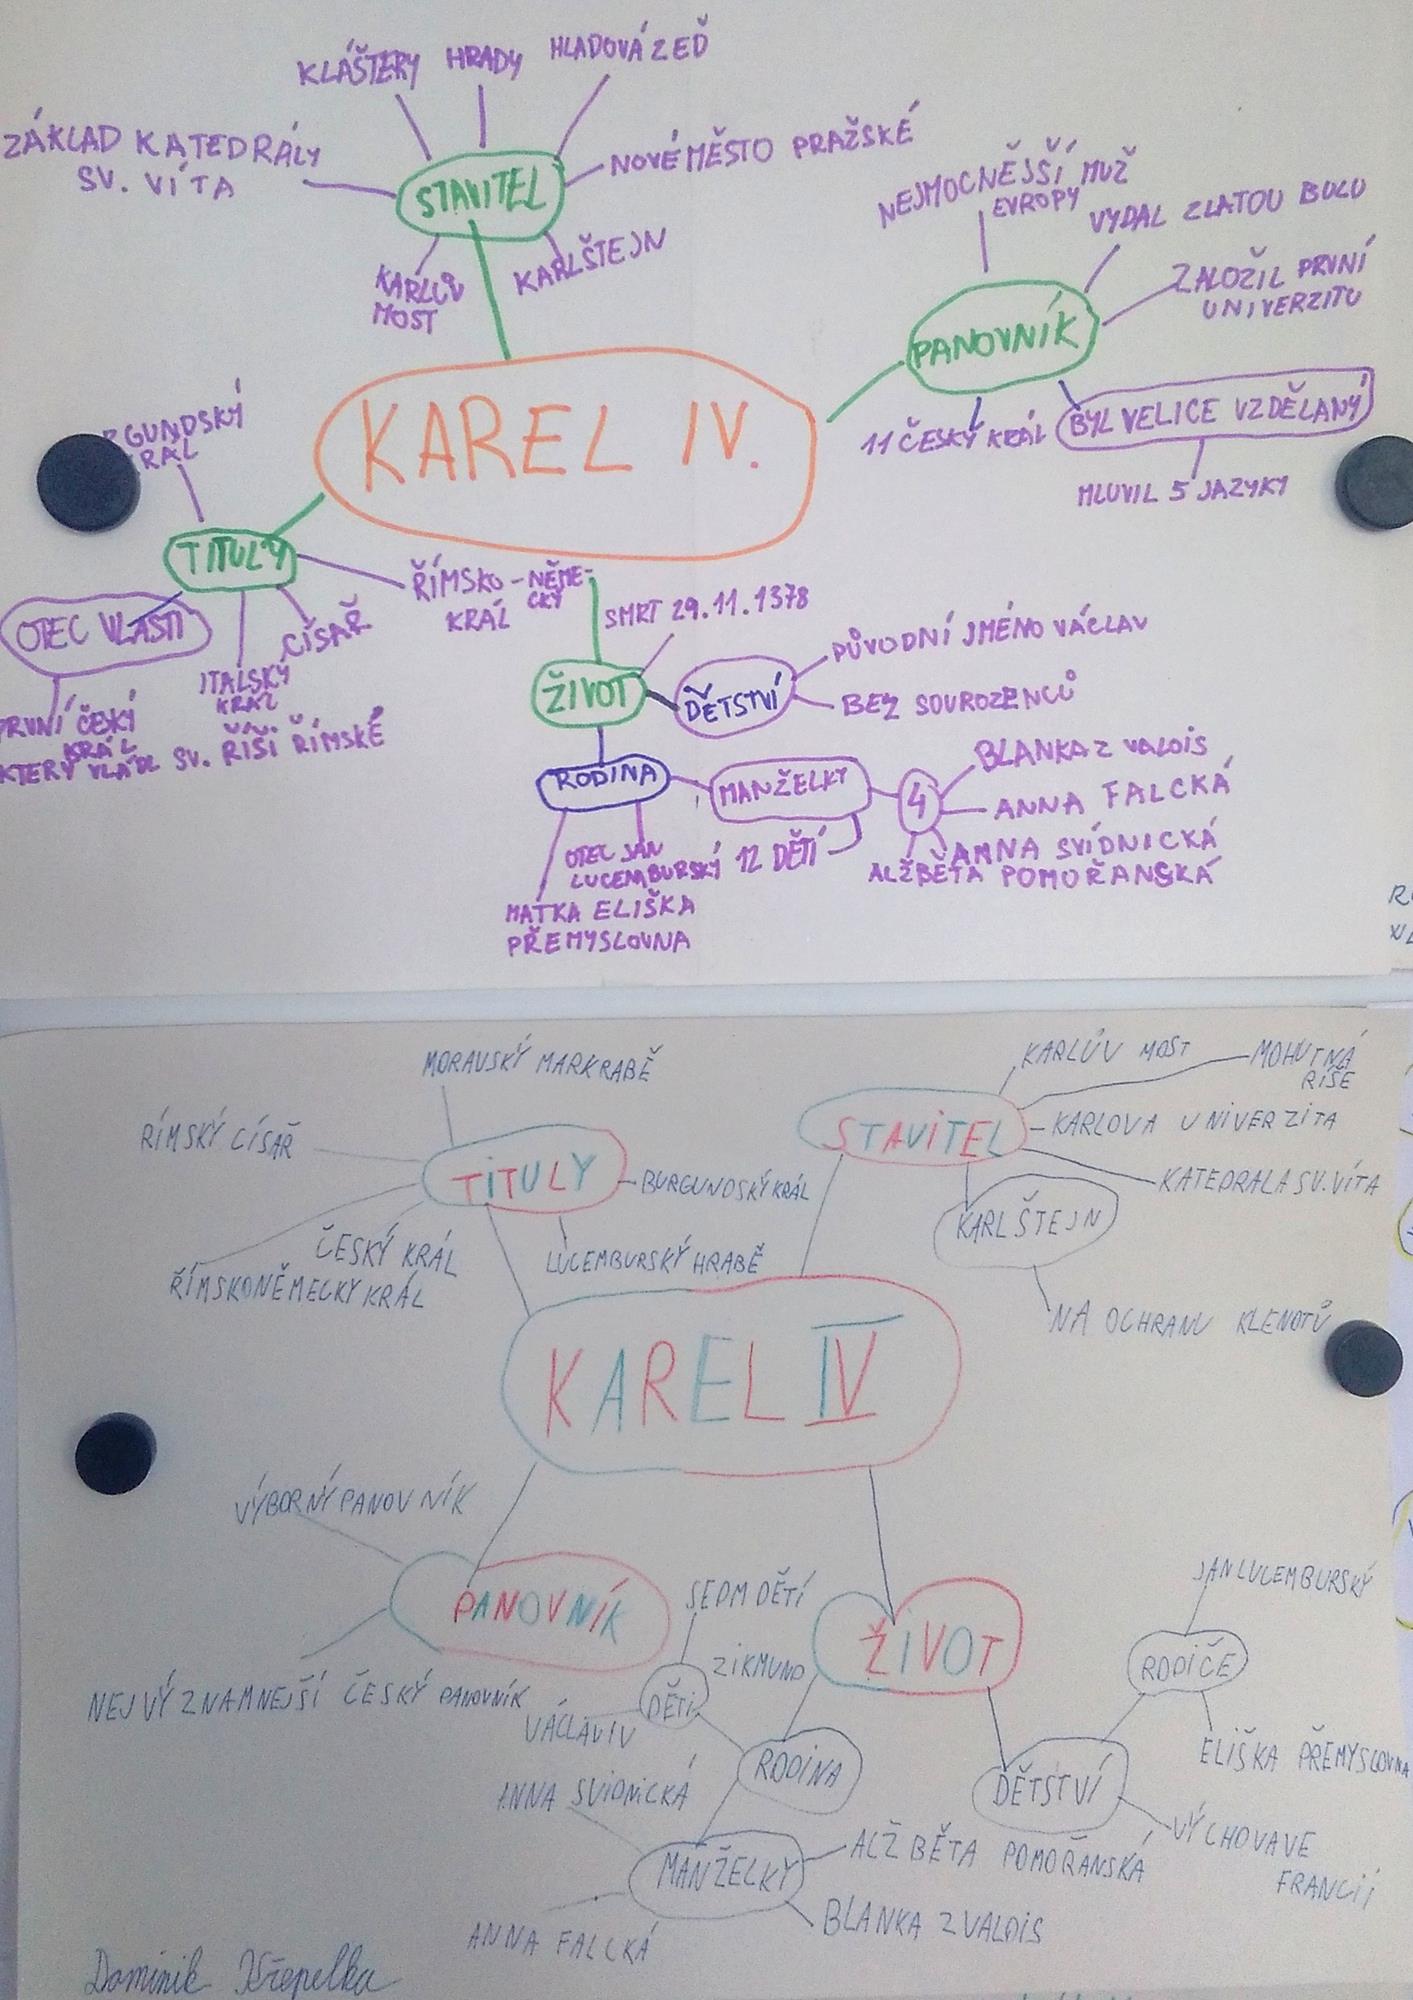 KLÁŠTERY HRADY HLADOVÁ ZEĎ
ZÁKLAD KATEDRÁLY
SV. VÍTA
STAVITEL
NOVÉ MĚSTO PRAŽSKÉ
KARLŮV
MOST
KARLŠTEJN
NEJMOCNĚJŠÍ MUŽ
EVROPY
VYDAL ZLATOU BULU
ZALOŽIL PRVNÍ
UNIVERZITU
PANOVNÍK
11 ČESKÝ KRÁL
BYL VELICE VZDĚLANÝ
MLUVIL 5 JAZYKY
KAREL IV.
RGUNDSKÝ
RÁL
TITULY
ŘÍMSKO-NĚME-
CKÝ
KRÁL
OTEC VLASTI
CÍSAŘ
ITALSKÝ
KRÁL
PRVNÍ ČESKÝ
KRÁL
KTERÝ VLÁDL SV. ŘÍŠI ŘÍMSKÉ
SMRT 29.11.1378
ŽIVOT
DĚTSTVÍ
PŮVODNÍ JMÉNO VÁCLAV
BEZ SOUROZENCŮ
RODINA
MANŽELKY
4
BLANKA Z VALOIS
ANNA FALCKÁ
ANNA SVÍDNICKÁ
ALŽBĚTA POMOŘANSKÁ
12 DĚTÍ
OTEC JAN
LUCEMBURSKÝ
MATKA ELIŠKA
PŘEMYSLOVNA
MORAVSKÝ MARKRABĚ
RÍMSKÝ CÍSAŘ
TITULY
BURGUNDSKÝ KRÁL
ČESKÝ KRÁL
ŘÍMSKONĚMECKÝ KRÁL
LUCEMBURSKÝ HRABĚ
KARLŮV MOST
MOHUTNÁ
RÍŠE
STAVITEL
KARLOVA UNIVERZITA
KATEDRALA SV. VÍTA
KARLŠTEJN
NA OCHRANU KLENOTŮ
KAREL IV
VÝBORNÝ PANOVNÍK
PANOVNÍK
NEJVÝZNAMNEJŠÍ ČESKÝ PANOVNÍK
ŽIVOT
SEDM DĚTÍ
ZIKMUND
DĚTI
VÁCLAV IV
RODINA
ANNA SVIDNICKÁ
MANŽELKY
ALŽBĚTA POMOŘANSKÁ
BLANKA Z VALOIS
ANNA FALCKÁ
JAN LUCEMBURSKÝ
RODIČE
ELIŠKA PŘEMYSLOVNA
DĚTSTVÍ
VÝCHOVA VE
FRANCII
Dominik Křepelka